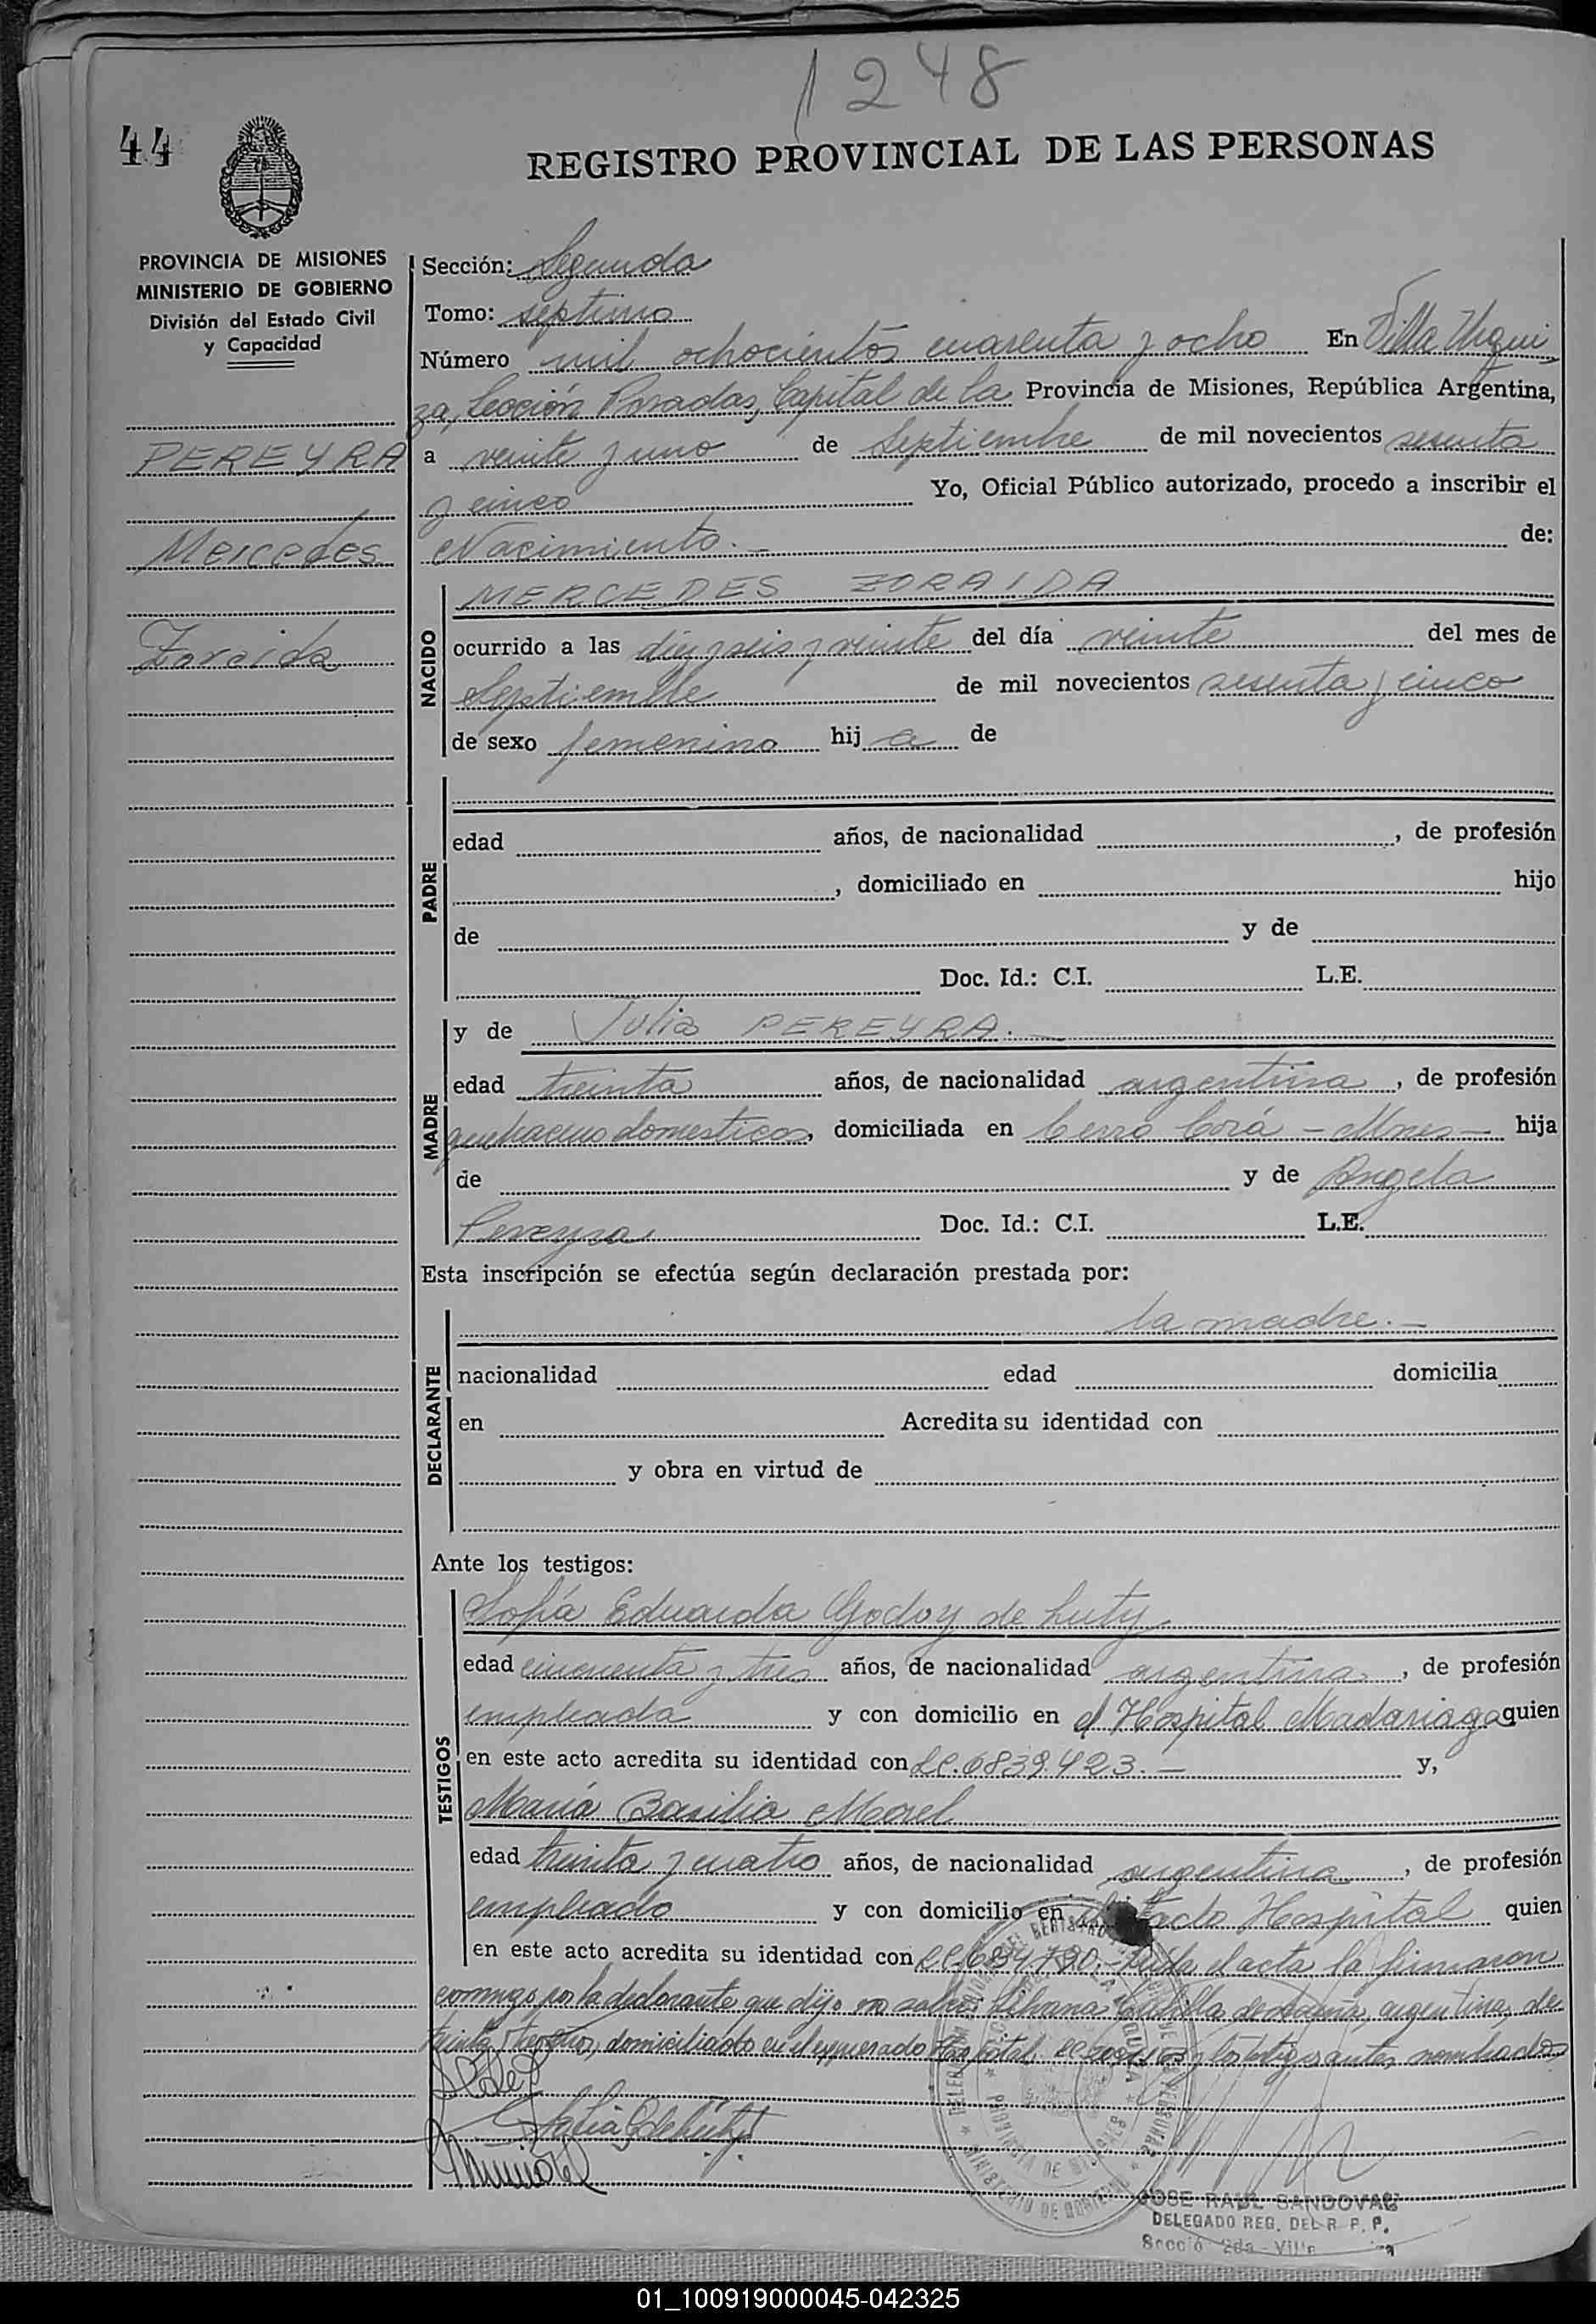 1248
44
REGISTRO PROVINCIAL DE LAS PERSONAS
PROVINCIA DE MISIONES
MINISTERIO DE GOBIERNO
División del Estado Civil
y Capacidad
PEREYRA
Mercedes
Zoraida
Sección: Segunda
Tomo: septimo
Número mil ochocientos cuarenta y ocho En Villa Urqui
za, Sección Posadas, Capital de la Provincia de Misiones, República Argentina,
a veinte y uno de Septiembre de mil novecientos sesenta
y cinco Yo, Oficial Público autorizado, procedo a inscribir el
Nacimiento.- de:
NACIDO
MERCEDES ZORAIDA
ocurrido a las diez y seis y veinte del día veinte del mes de
Septiembre de mil novecientos sesenta y cinco
de sexo femenino hij a de
PADRE
edad años, de nacionalidad , de profesión
, domiciliado en hijo
de y de
Doc. Id.: C.I. L.E.
MADRE
y de Julia PEREYRA.-
edad treinta años, de nacionalidad argentina, de profesión
quehaceres domesticos, domiciliada en Cerro Corá - Mnes - hija
de y de Angela
Pereyra Doc. Id.: C.I. L.E.
Esta inscripción se efectúa según declaración prestada por:
DECLARANTE
la madre.-
nacionalidad edad domicilia
en Acredita su identidad con
y obra en virtud de
Ante los testigos:
TESTIGOS
Sofía Eduarda Godoy de Luty
edad cincuenta y tres años, de nacionalidad argentina, de profesión
empleada y con domicilio en el Hospital Madariaga quien
en este acto acredita su identidad con LC. 6839.423.- y,
María Basilia Morel
edad treinta y cuatro años, de nacionalidad argentina, de profesión
empleado y con domicilio en Hospital quien
en este acto acredita su identidad con Leída el acta la firmaron
conmigo por la declarante que dijo no saber argentina, de
treinta domiciliado en el expresado Hospital y los testigos antes nombrados
JOSE RAUL SANDOVAL
DELEGADO REG. DEL R. P. P.
Secció 2da - Villa
01_100919000045-042325